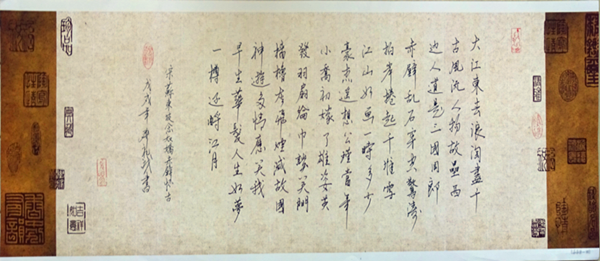 大江東去浪淘盡千
古風流人物故壘西
边人道是三國周郎
赤壁亂石穿空驚濤
拍岸捲起千堆雪
江山如画一時多少
豪杰遥想公瑾當年
小喬初嫁了雄姿英
發羽扇綸巾談笑間
檣櫓灰飛煙滅故國
神遊多情應笑我
早生華髮人生如夢
一樽還酹江月
宋蘇東坡念奴嬌赤壁懷古
戊戌年書
吉祥